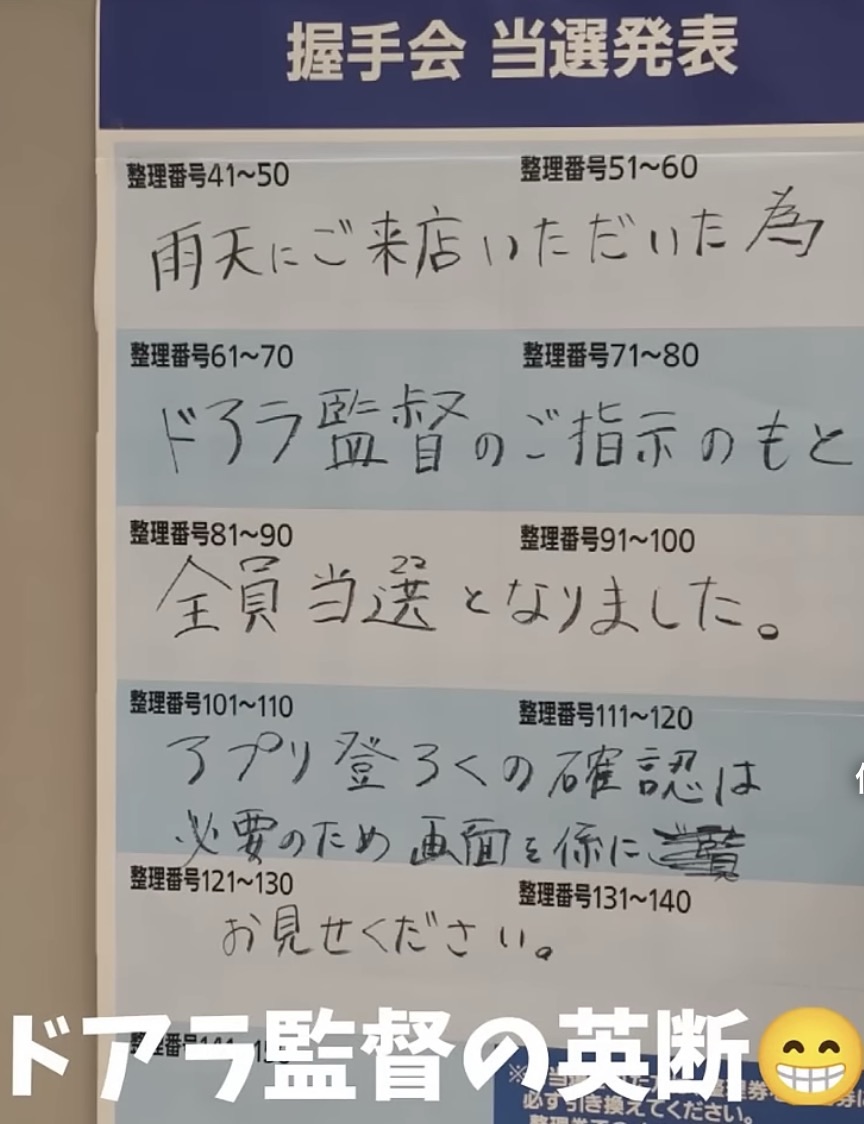 握手会 当選発表
整理番号41~50 整理番号51~60
雨天にご来店いただいた為
整理番号61~70 整理番号71~80
ドアラ監督のご指示のもと
整理番号81~90 整理番号91~100
全員当選となりました。
整理番号101~110 整理番号111~120
アプリ登ろくの確認は
必要のため画面を係に
整理番号121~130 整理番号131~140
お見せください。
ドアラ監督の英断😁
必ず引き換えてください。